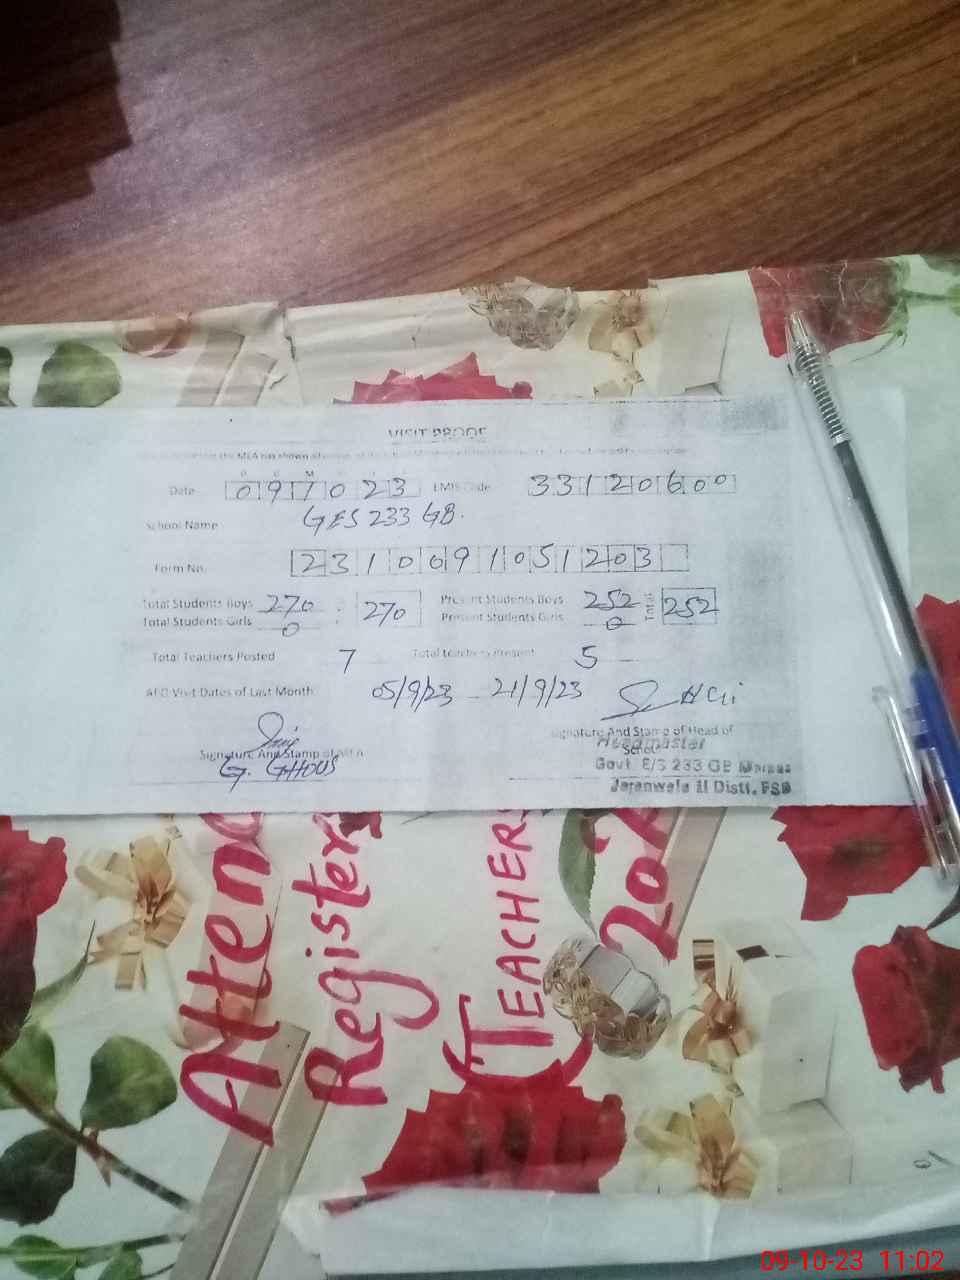 VISIT PROOF
the MEA has shown
Date 091023 EMIS Code 33120600
School Name GES 233 GB.
Form No. 2310091051203
Total Students Boys 270 270 Present Students Boys 252 Total 252
Total Students Girls 0 Present Students Girls 0
Total Teachers Posted 7 Total teachers Present 5
AEO Visit Dates of Last Month 05/9/23 21/9/23
Signature And Stamp of MEA
G. GHOUS
Signature And Stamp of Head of
School
Headmaster
Govt. E/S 233 GB
Jaranwala II Distt. FSD
Atten
Register
(TEACHERS)
09-10-23 11:02